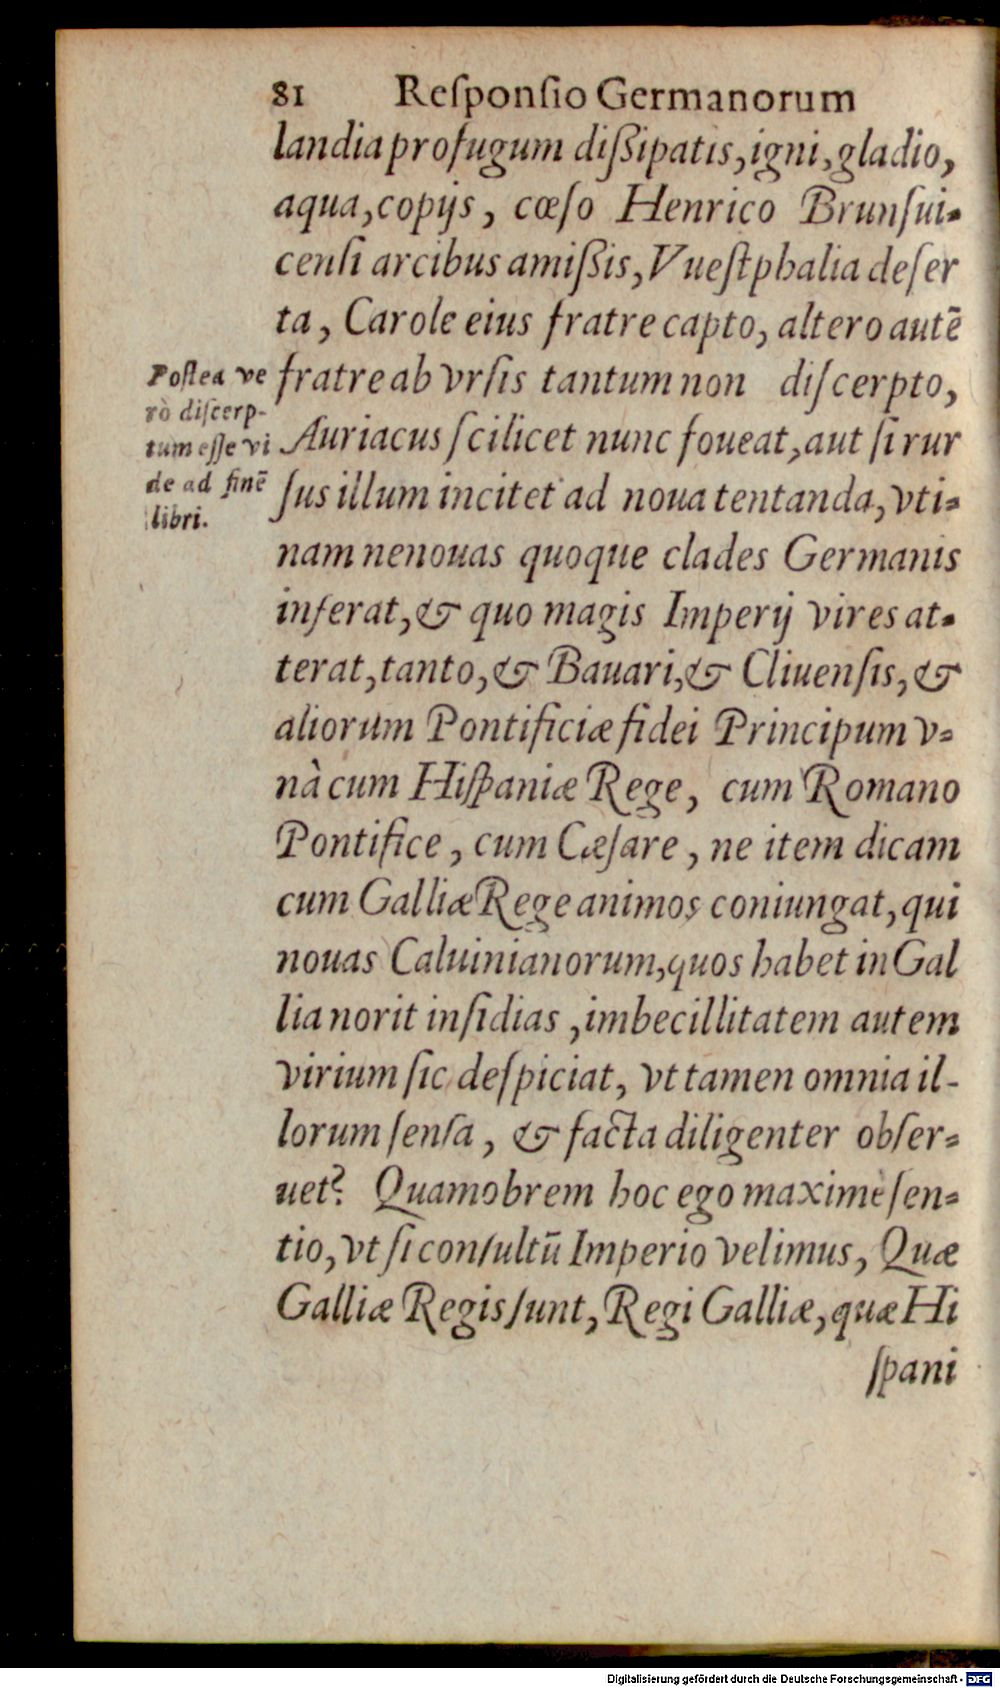 81 Reſponſio Germanorum
landia profugum dißipatis, igni, gladio,
aqua, copijs, cœſo Henrico Brunſui-
cenſi arcibus amißis, Vueſtphalia deſer
ta, Carole eius fratre capto, altero autē
fratre ab vrſis tantum non diſcerpto,
Auriacus ſcilicet nunc foueat, aut ſi rur
ſus illum incitet ad noua tentanda, vti-
nam ne nouas quoque clades Germanis
inferat, & quo magis Imperij vires at-
terat, tanto, & Bauari, & Cliuenſis, &
aliorum Pontificiæ fidei Principum v-
nà cum Hiſpaniæ Rege, cum Romano
Pontifice, cum Cæſare, ne item dicam
cum Galliæ Rege animos coniungat, qui
nouas Caluinianorum, quos habet in Gal
lia norit inſidias, imbecillitatem autem
virium ſic deſpiciat, vt tamen omnia il-
lorum ſenſa, & facta diligenter obſer-
uet? Quamobrem hoc ego maximè ſen-
tio, vt ſi conſultū Imperio velimus, Quæ
Galliæ Regis ſunt, Regi Galliæ, quæ Hi
ſpani
Poſtea ve
rò diſcerp-
tum eſſe vi
de ad finē
libri.
Digitalisierung gefördert durch die Deutsche Forschungsgemeinschaft - DFG